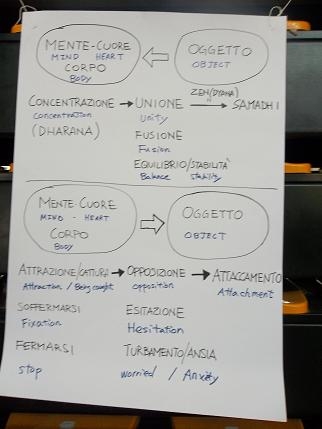 MENTE-CUORE
MIND HEART
CORPO
BODY
OGGETTO
OBJECT
ZEN/DYANA)
CONCENTRAZIONE → UNIONE → SAMADHI
Concentration Unity
(DHARANA)
FUSIONE
Fusion
EQUILIBRIO/STABILITÀ
Balance stability
MENTE-CUORE
MIND - HEART
CORPO
BODY
OGGETTO
OBJECT
ATTRAZIONE/CATTURA → OPPOSIZIONE → ATTACCAMENTO
Attraction / Being caught opposition Attachment
SOFFERMARSI ESITAZIONE
Fixation Hesitation
FERMARSI TURBAMENTO/ANSIA
stop worried / Anxiety